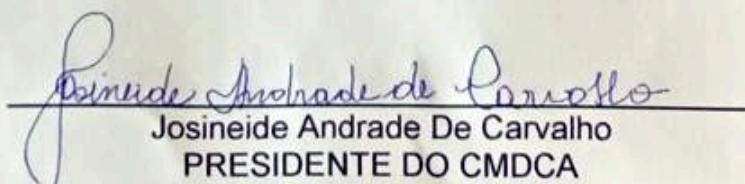 Josineide Andrade de Carvalho
Josineide Andrade De Carvalho
PRESIDENTE DO CMDCA